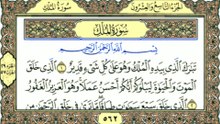 الجزء التاسع والعشرون سورة الملك
سورة الملك
بسم الله الرحمن الرحيم
تبرك الذي بيده الملك وهو على كل شيء قدير ١ الذي خلق
الموت والحيوة ليبلوكم أيكم أحسن عملا وهو العزيز الغفور
٢ الذي خلق سبع سموت طباقا ما ترى في خلق
٥٦٢